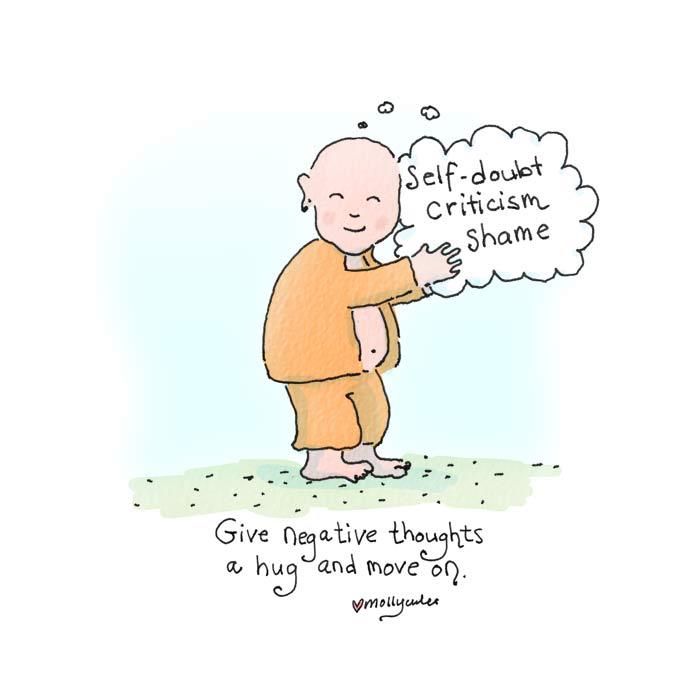 Self-doubt
criticism
shame
Give negative thoughts
a hug and move on.
mollycules